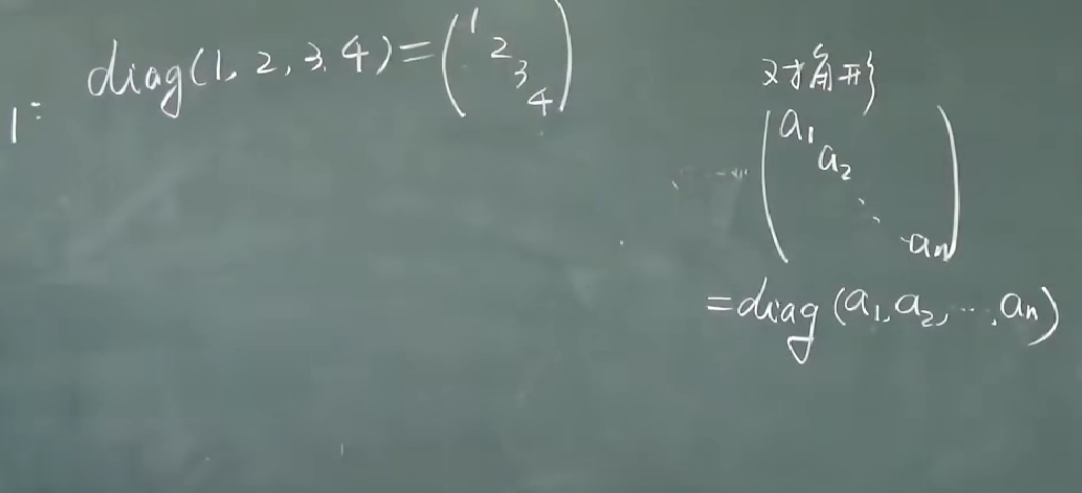 diag(1, 2, 3, 4) = (1 2 3 4)
1=
对角形
(a₁
a₂
⋱
aₙ)
=diag(a₁, a₂, ⋯, aₙ)